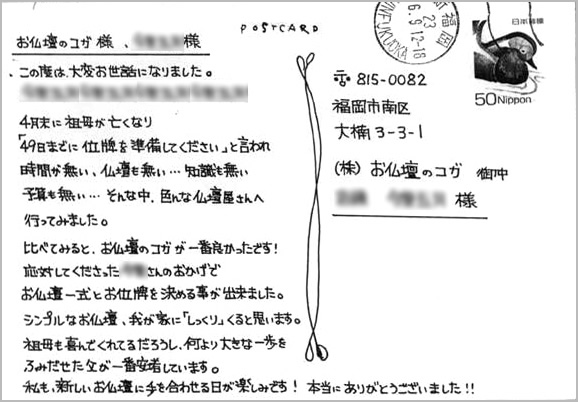 POSTCARD
お仏壇のコガ 様 、 様
、この度は、大変お世話になりました。
4月末に祖母が亡くなり
「49日までに位牌を準備してください」と言われ
時間が無い、仏壇も無い…知識も無い
予算も無い…そんな中、色んな仏壇屋さんへ
行ってみました。
比べてみると、お仏壇のコガが一番良かったです!
応対してくださった さんのおかげで
お仏壇一式とお位牌を決める事が出来ました。
シンプルなお仏壇、我が家に「しっくり」くると思います。
祖母も喜んでくれてるだろうし、何より大きな一歩を
ふみだせた父が一番安堵しています。
私も、新しいお仏壇に手を合わせる日が楽しみです! 本当にありがとうございました!!
福岡
23
6.9.12-18
FUKUOKA
日本郵便
50 Nippon
〒815-0082
福岡市南区
大楠3-3-1
(株)お仏壇のコガ 御中
様